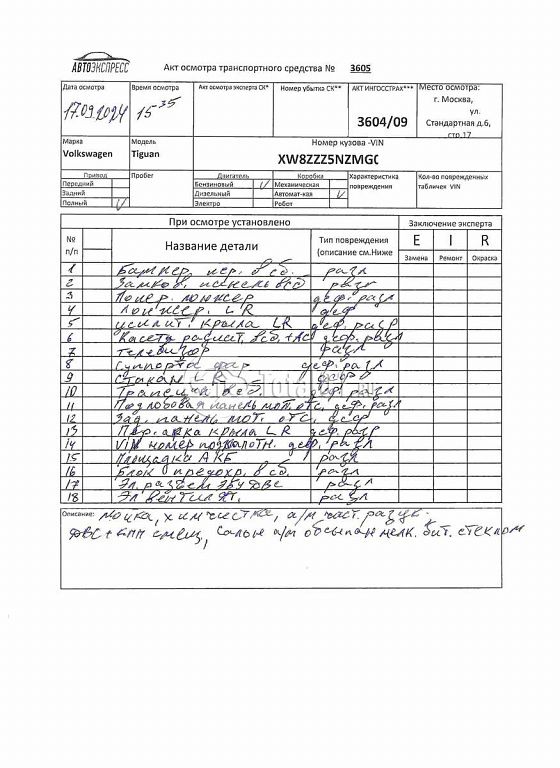 АВТОЭКСПРЕСС
Акт осмотра транспортного средства № 3605
Дата осмотра Время осмотра Акт осмотра эксперта СК* Номер убытка СК** АКТ ИНГОССТРАХ*** Место осмотра:
17.09.2024 15-35 3604/09 г. Москва, ул. Стандартная д.6, стр.17
Марка Модель Номер кузова -VIN
Volkswagen Tiguan XW8ZZZ5NZMG
Привод Пробег Двигатель Коробка Характеристика повреждения Кол-во поврежденных табличек VIN
Передний Бензиновый V Механическая
Задний Дизельный Автомат-кая V
Полный V Электро Робот
При осмотре установлено Заключение эксперта
№ п/п Название детали Тип повреждения (описание см.Ниже E I R
Замена Ремонт Окраска
1 Бампер. пер. в сб. разл
2 Замков. панель в сб разл
3 Попер. лонжер деф. разл
4 Лонжер. LR деф
5 усилит. крыла LR деф. разр
6 Касета радиат. в сб. +АС деф. разл
7 телевизор разл
8 Суппорта фар деф. разл
9 Стакан LR
10 Трапеция в сб. деф. разл
11 Подлобовая панель мот. отс. деф. разл
12 Зад. панель мот. отс. деф
13 Пер. арка крыла LR деф. разр
14 VIN номер подкапотн. деф. разл
15 Площадка АКБ разл
16 Блок предохр. в сб. разл
17 Эл. разъем ЭБУ ДВС разл
18 Эл. вентил. разл
Описание: мойка, химчистка, а/м част. разук.
ДВС + КПП смещ, Салон а/м обсыпан мелк. бит. стеклом